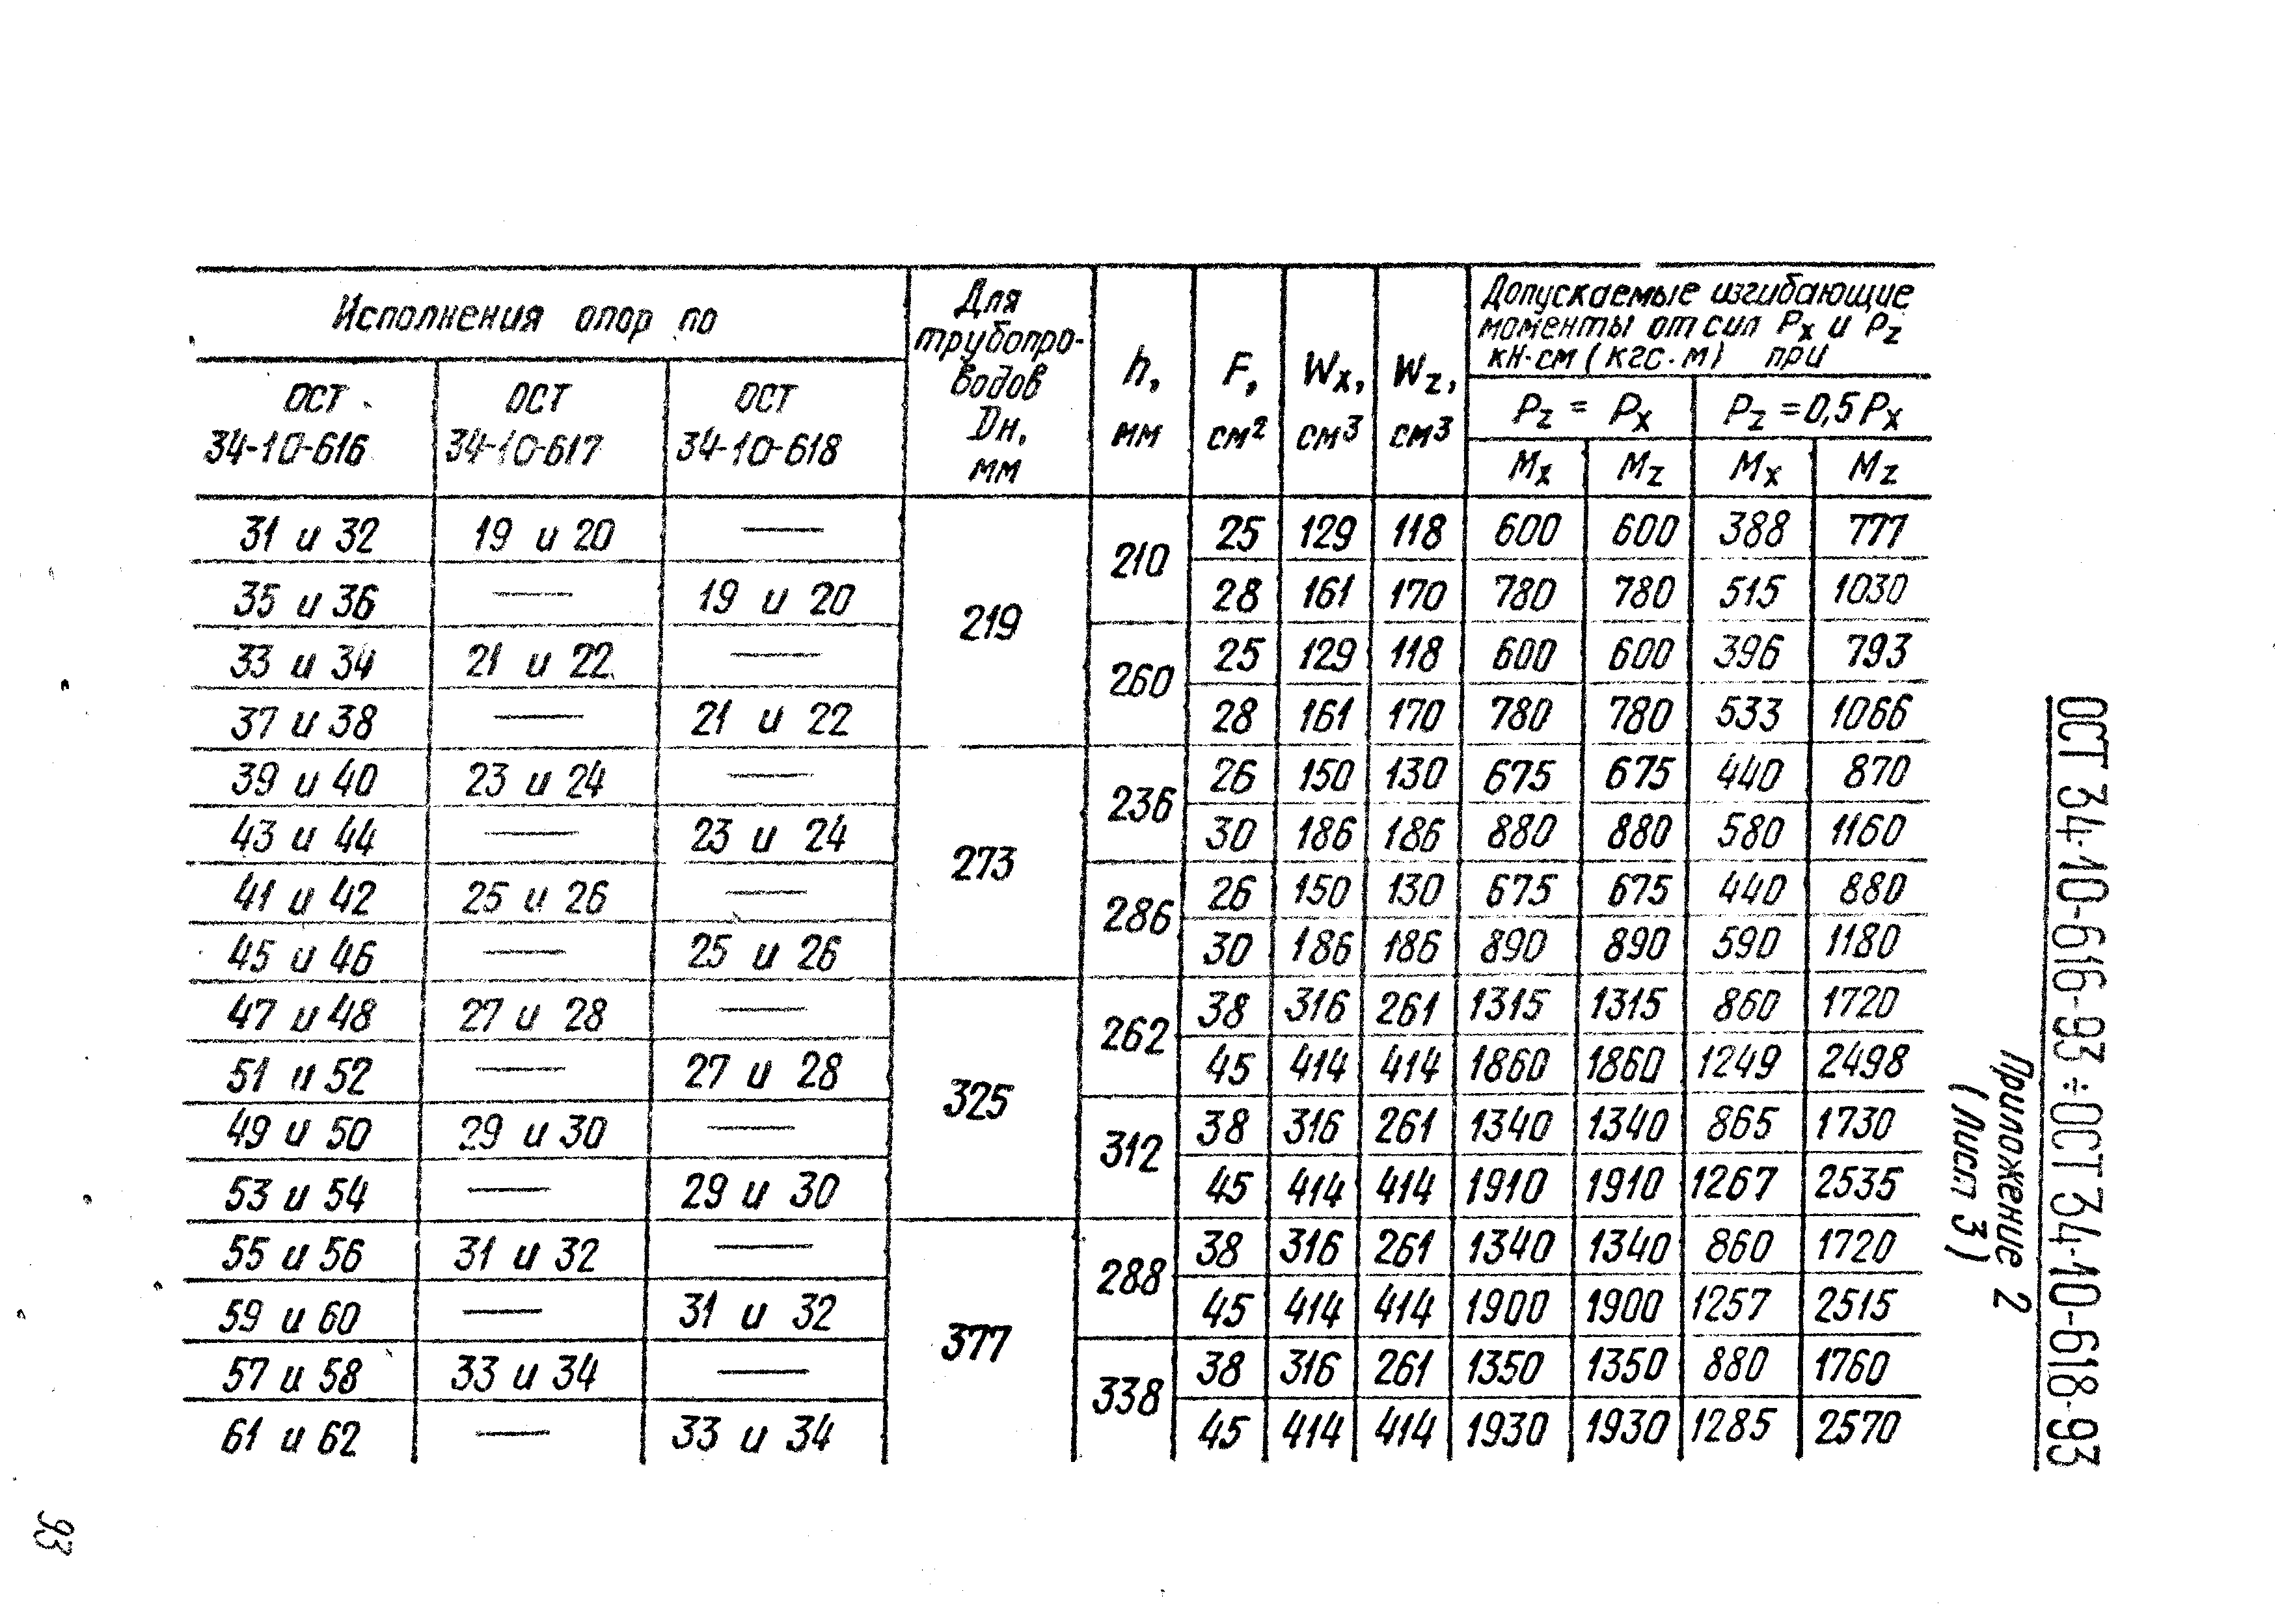 ОСТ 34-10-616-93÷ОСТ 34-10-618-93
Приложение 2
(Лист 3)
Исполнения опор по
ОСТ 34-10-616
ОСТ 34-10-617
ОСТ 34-10-618
Для трубопро-
водов
Dн,
мм
h, мм
F, см²
Wx, см³
Wz, см³
Допускаемые изгибающие
моменты от сил Px и Pz
кН·см (кгс·м) при
Pz = Px
Pz = 0,5 Px
Mx Mz Mx Mz
31 и 32 19 и 20 — 219 210 25 129 118 600 600 388 777
35 и 36 — 19 и 20 28 161 170 780 780 515 1030
33 и 34 21 и 22 — 260 25 129 118 600 600 396 793
37 и 38 — 21 и 22 28 161 170 780 780 533 1066
39 и 40 23 и 24 — 273 236 26 150 130 675 675 440 870
43 и 44 — 23 и 24 30 186 186 880 880 580 1160
41 и 42 25 и 26 — 286 26 150 130 675 675 440 880
45 и 46 — 25 и 26 30 186 186 890 890 590 1180
47 и 48 27 и 28 — 325 262 38 316 261 1315 1315 860 1720
51 и 52 — 27 и 28 45 414 414 1860 1860 1249 2498
49 и 50 29 и 30 — 312 38 316 261 1340 1340 865 1730
53 и 54 — 29 и 30 45 414 414 1910 1910 1267 2535
55 и 56 31 и 32 — 377 288 38 316 261 1340 1340 860 1720
59 и 60 — 31 и 32 45 414 414 1900 1900 1257 2515
57 и 58 33 и 34 — 338 38 316 261 1350 1350 880 1760
61 и 62 — 33 и 34 45 414 414 1930 1930 1285 2570
93